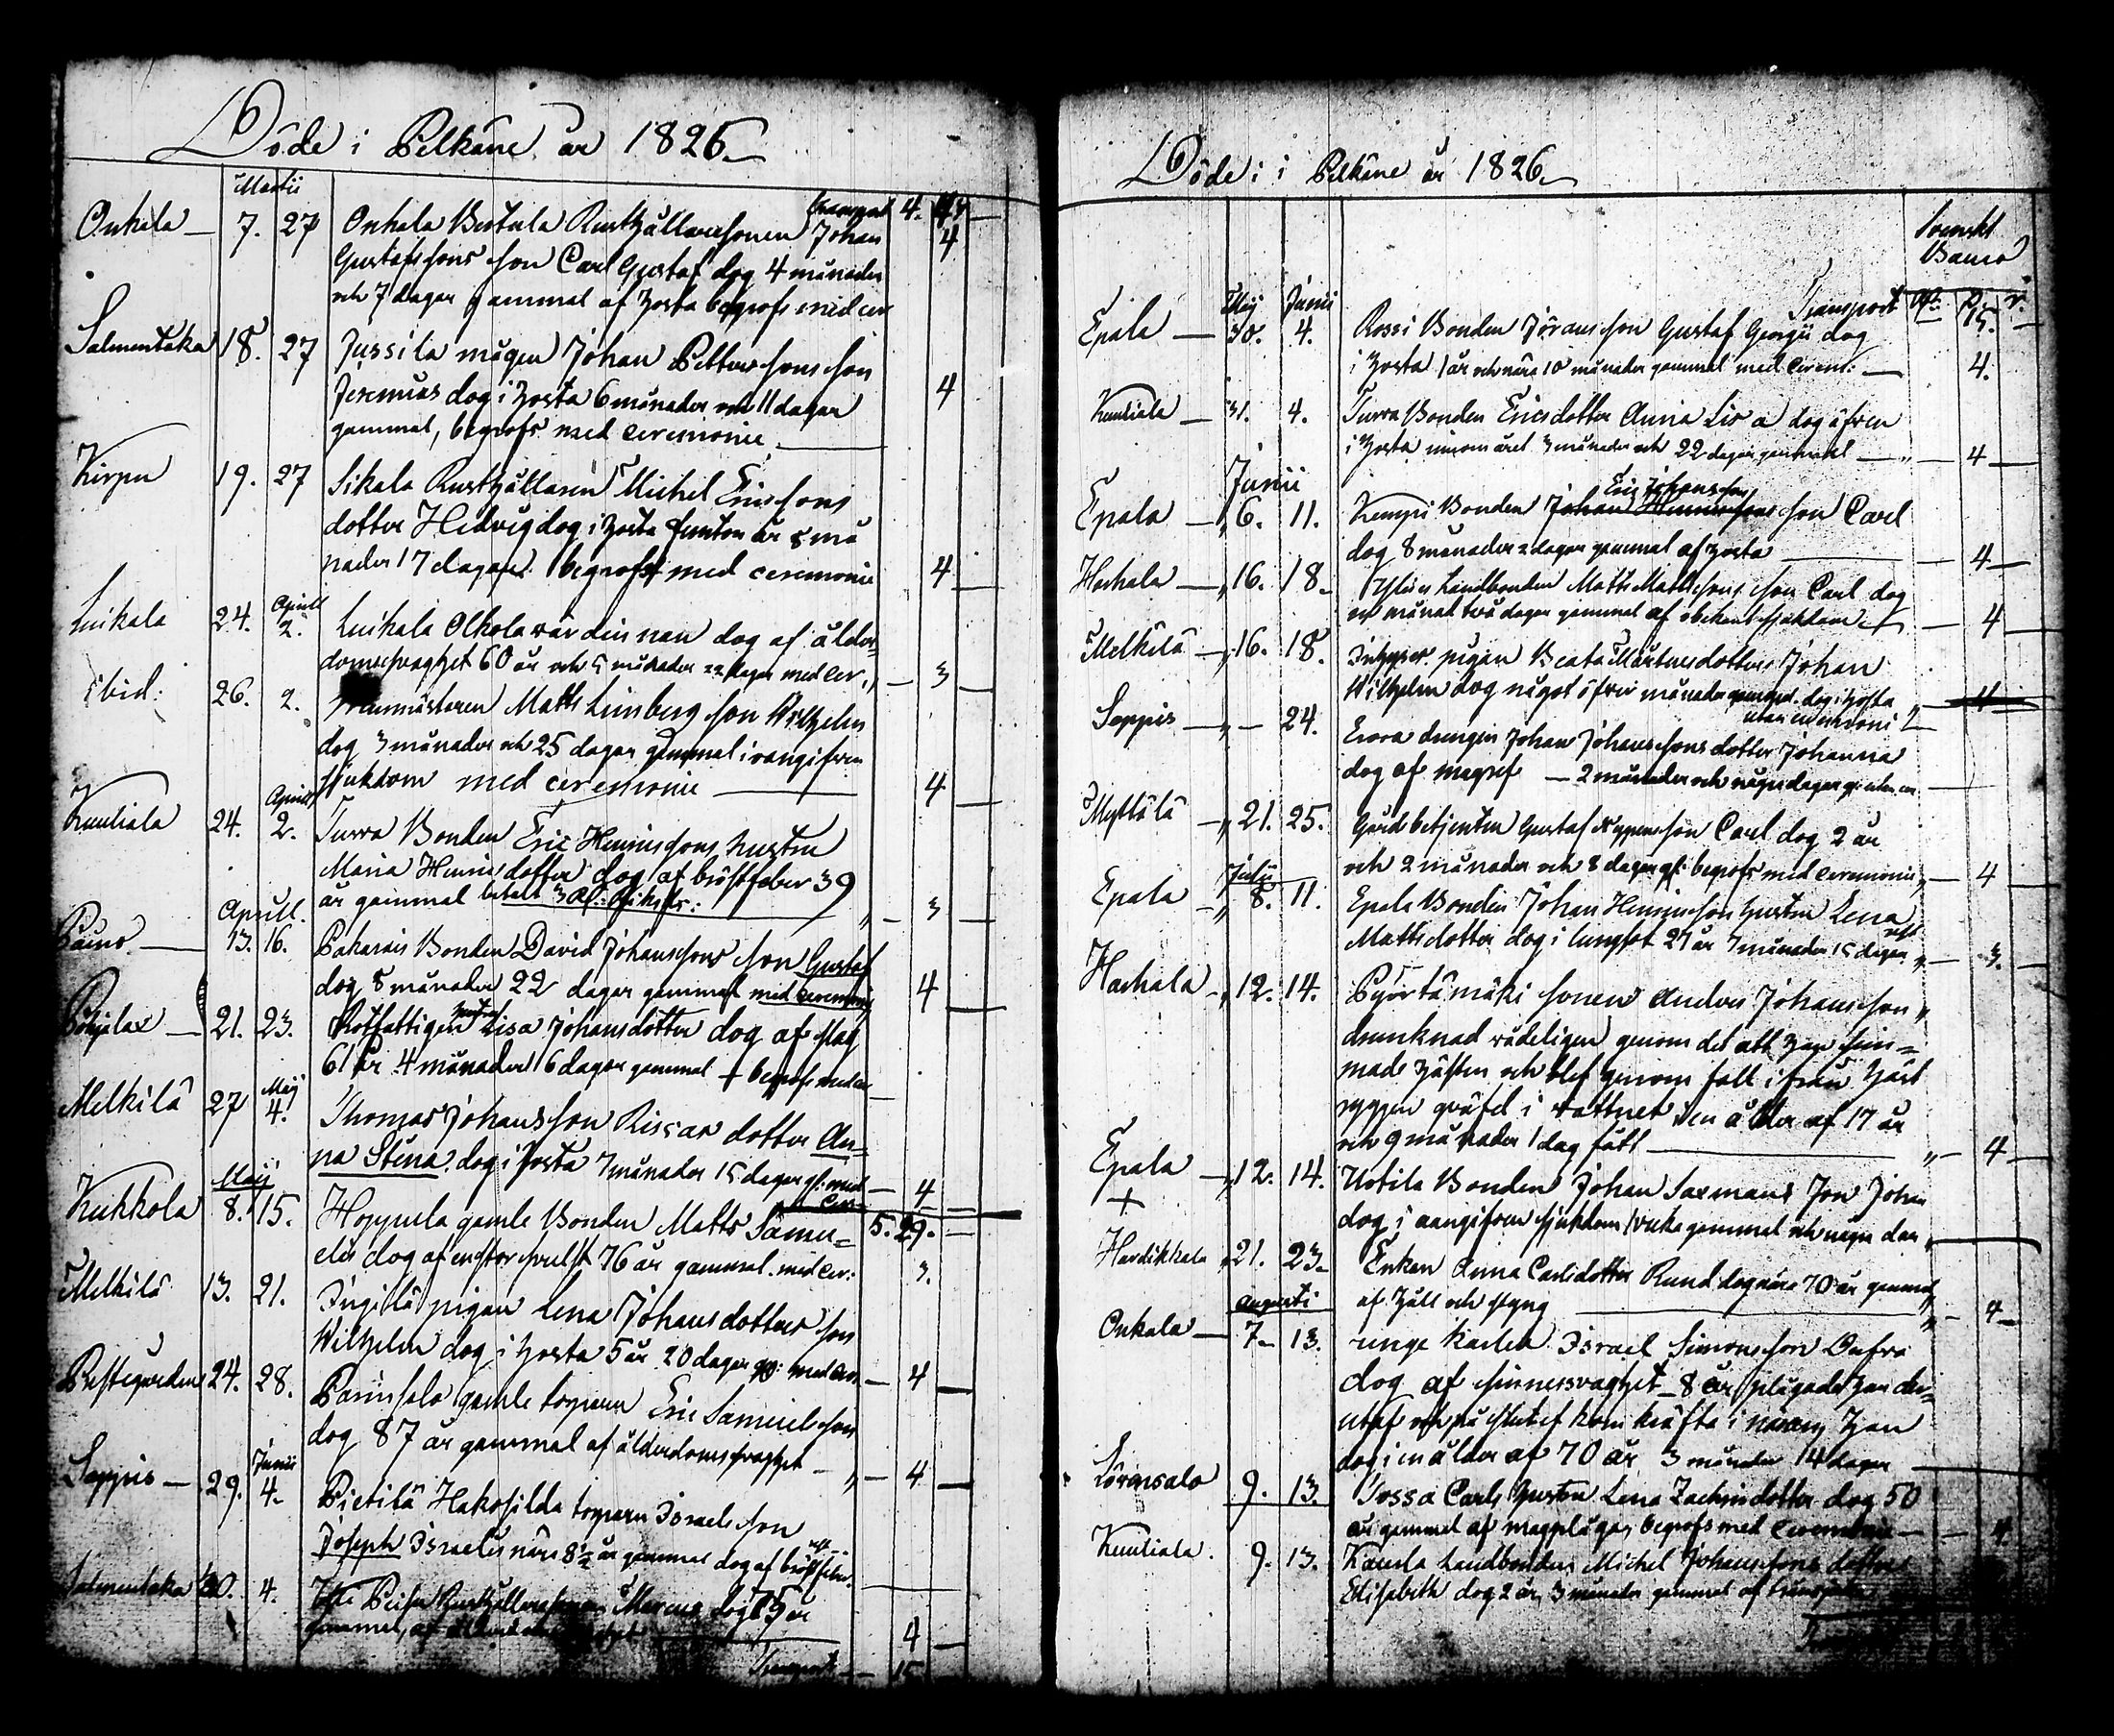 Döde i Pelkäne år 1826.
Martii
Transport 4.
Onkala 7. 27 Onkala Bertula Rusthållaresonen Johan 4
Gustafssons son Carl Gustaf dog 4 månader
och 7 dagar gammal af hosta begrofs med cer
Salmentaka 18. 27 Jussila mågen Johan Petterssons son
Jeremias dog i hosta 6 månader och 11 dagar 4
gammal, begrofs med ceremonie
19. 27 Sikala Rusthållaren Michel Ericssons
dotter Hedvig dog i hosta år 8 må
nader 17 dagar begrofs med ceremonie 4
Aprill
Luikala 24. 2. Luikala Olkola värdinnan dog af ålder=
domssvaghet 60 år och 5 månader 22 dagar med cer. 3
Ibid: 26. 2. Matts Limberg son Wilhelm
dog 3 månader och 25 dagar gammal i oangifven
sjukdom med ceremonie 4
Aprill
Kuuliala 24. 2. Turra Bonden Eric Henricssons hustru
Maria Henricsdotter dog af bröstfeber 39
år gammal betalt 3 3
Aprill.
13. 16. Bonden David Johanssons son Gustaf
dog 8 månader 22 dagar gammal med ceremonie 4
21. 23. Rotfattigen Lisa Johansdotter dog af slag
61 år 4 månader 6 dagar gammal + begrofs med cer
Maj
Melkilä 27 4. Thomas Johansson Rissas dotter An=
na Stina. dog i hosta 7 månader 15 dagar gl: med 4
Cer.
Maij
Kukkola 8. 15. Hoppula gamle Bonden Matts Samu= 5. 29.
elis dog af en stor svulst 76 år gammal. med cer: 3.
Melkilä 13. 21. Ingilä pigan Lena Johansdotters son
Wilhelm dog i hosta 5 år 20 dagar gl: med cer. 4
Prestegården 24. 28. gamle torparn Eric Samuelsson
dog 87 år gammal af ålderdomssvaghet 4
Junii
Sappis 29. 4. Pietilä Hakosilda torparn Israels son
Joseph Israelis nära 8½ år gammal dog af bröstfeber.
Salmentaka 30. 4. Marcus dog 75 år
gammal, af 4
Transport 15
Döde i i Pelkäne år 1826.
Svenskt
Banco
Maj Junii Transport 15.
Epala 30. 4. Rossi Bonden Jöransson Gustaf Georgii dog
i hosta 1 år och nära 10 månader gammal med cerem: 4.
Kuuliala 31. 4. Turra Bonden Ericsdotter Anna Lisa dog äfven
i hosta innom året 3 månader och 22 dagar gammal 4
Junii Eric Johansson
Epala 6. 11. Kemppi Bonden Johan Henricssons son Carl
dog 8 månader 2 dagar gammal af hosta 4
Harhala 16. 18. Landbonden Matts Mattssons son Carl dog
en månad två dagar gammal af obekant sjukdom 4
Melkilä 16. 18. pigan Beata Mårtensdotters Johan
Wilhelm dog något öfver månader gammal. dog i hosta 4
utan ceremoni
Sappis 24. drengen Johan Johanssons dotter Johanna
dog af magref 2 månader och några dagar gl: utan cer.
Myttälä 21. 25. Gårdsbetjenten Gustaf son Carl dog 2 år
och 2 månader och 8 dagar gl: begrofs med ceremonie 4
Julii
Epala 8. 11. Epala Bonden Johan Henricsson hustru Lena
Mattsdotter dog i lungsot 27 år 7 månader 15 dagar 3.
Harhala 12. 14. Pyörtämäki sonen Anders Johansson
drunknad vådeligen genom det att han sim=
made hästen och blef genom fall ifrån häst
ryggen qväfd i vattnet i en ålder af 17 år
och 9 månader 1 dag fått 4
Epala 12. 14. Uotila Bonden Johan Saxmans son Johan
+ dog i oangifven sjukdom 1 vecka gammal och några dar
Havdikkala 21. 23. Enkan Anna Carlsdotter Rund dog nära 70 år gammal
af håll och styng 4
Augusti
Onkala 7. 13. Karlen Israel Simonsson
dog af sinnessvaghet 8 år plågades han der=
utaf och på slutet kom kräfta i han
dog i en ålder af 70 år 3 månader 14 dagar
9. 13. Tossa Carls hustru Lena Zachrisdotter dog 50
år gammal af magplågor, begrofs med ceremonie 4
Kuuliala. 9. 13. Landbonden Michel Johanssons dotter
Elisabeth dog 2 år, 3 månader gammal af